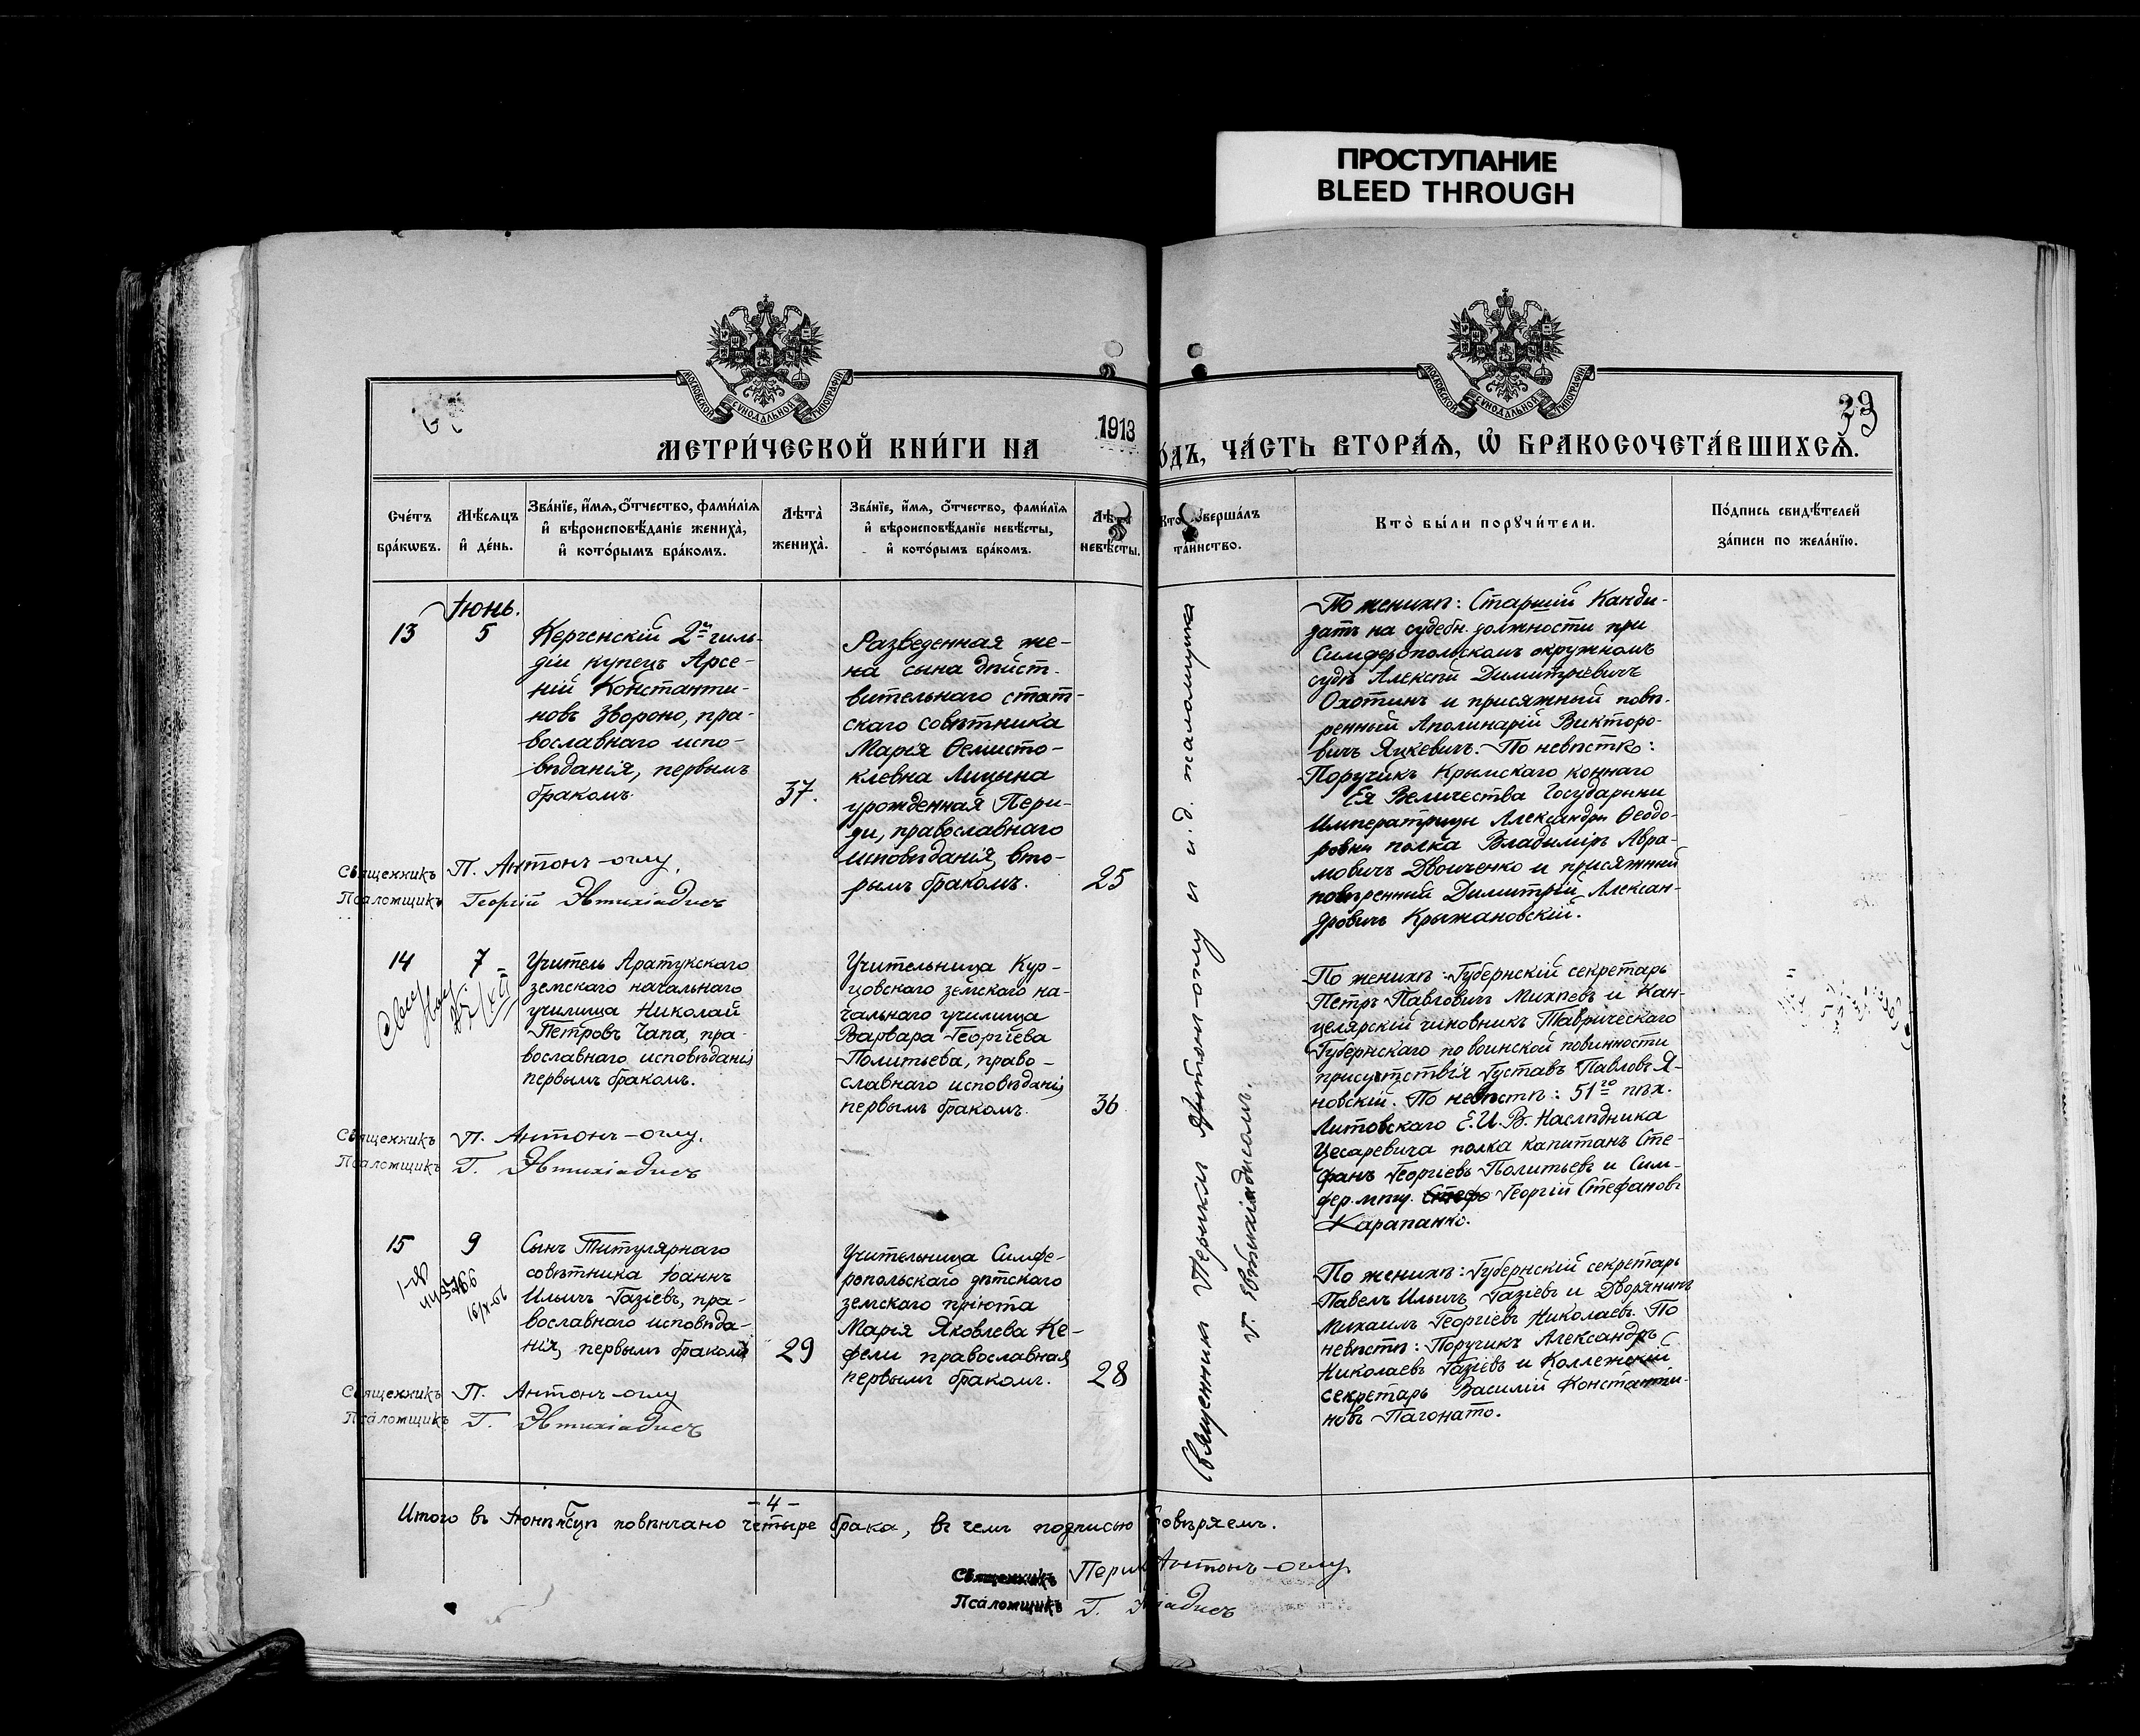 ПРОСТУПАНИЕ
BLEED THROUGH
МОСКОВСКОЙ СѴНОДАЛЬНОЙ ТИПОГРАФІИ
МОСКОВСКОЙ СѴНОДАЛЬНОЙ ТИПОГРАФІИ
29
1913
МЕТРИ́ЧЕСКОЙ КНИ́ГИ НА
О́ДЪ, ЧА́СТЬ ВТОРА́Я, Ѡ БРАКОСОЧЕТА́ВШИХСѦ.
Сче́тъ
бра́кѡвъ.
Мѣ́сѧцъ
и҆ де́нь.
Зва́нїе, и҆́мѧ, ѻ҆́тчество, фами́лїѧ
и҆ вѣроисповѣ́данїе жениха̀,
и҆ кото́рымъ бра́комъ.
Лѣта̀
жениха̀.
Зва́нїе, и҆́мѧ, ѻ҆́тчество, фами́лїѧ
и҆ вѣроисповѣ́данїе невѣ́сты,
и҆ кото́рымъ бра́комъ.
Лѣта̀
невѣ́сты.
Кто̀ соверша́лъ
та́инство.
Кто̀ бы́ли порꙋчи́тели.
По́дпись свидѣ́телей
за́писи по жела́нїю.
Іюнь.
13
5
Керченскій 2й гиль-
діи купецъ Арсе-
ній Константи-
новъ Звороно, пра-
вославнаго испо-
вѣданія, первымъ
бракомъ.
37.
Разведенная же-
на сына дѣйст-
вительнаго стат-
скаго совѣтника
Марія Ѳемисто-
клевна Лицына
урожденная Пери-
ди, православнаго
исповѣданія, вто-
рымъ бракомъ.
25
По женихѣ: Старшій Канди-
датъ на судебн. должности при
Симферопольскомъ окружномъ
судѣ Алексѣй Димитріевичъ
Охотинъ и присяжный повѣ-
ренный Аполинарій Викторо-
вичъ Яцкевичъ. По невѣстѣ:
Поручикъ Крымскаго коннаго
Ея Величества Государыни
Императрицы Александры Ѳеодо-
ровны полка Владиміръ Авра-
мовичъ Двойченко и присяжный
повѣренный Димитрій Алексан-
дровичъ Крыжановскій.
Священникъ П. Антонъ-оглу.
Псаломщикъ Георгій Эвтихіадисъ
14
7
Учитель Аратукскаго
земскаго начальнаго
училища Николай
Петровъ Чапа, пра-
вославнаго исповѣданія,
первымъ бракомъ.
Учительница Кур-
цовскаго земскаго на-
чальнаго училища
Варвара Георгіева
Политьева, право-
славнаго исповѣданія,
первымъ бракомъ.
36
По женихѣ: Губернскій секретарь
Петръ Павловичъ Михѣевъ и Кан-
целярскій чиновникъ Таврическаго
Губернскаго по воинской повинности
присутствія Густавъ Павловъ Я-
новскій. По невѣстѣ: 51го пѣх.
Литовскаго Е.И.В. Наслѣдника
Цесаревича полка капитанъ Сте-
фанъ Георгіевъ Политьевъ и Сим-
фер. мѣщ. Георгій Стефановъ
Карапанко.
Священникъ П. Антонъ-оглу.
Псаломщикъ Г. Эвтихіадисъ
15
9
Сынъ Титулярнаго
совѣтника Іоаннъ
Ильичъ Газіевъ, пра-
вославнаго исповѣда-
нія, первымъ бракомъ
29
Учительница Симфе-
ропольскаго дѣтскаго
земскаго пріюта
Марія Яковлева Ке-
фели православная
первымъ бракомъ.
28
По женихѣ: Губернскій секретарь
Павелъ Ильичъ Газіевъ и Дворянинъ
Михаилъ Георгіевъ Николаевъ. По
невѣстѣ: Поручикъ Александръ
Николаевъ Газіевъ и Коллежскій
секретарь Василій Константи-
новъ Пагонато.
Священникъ П. Антонъ-оглу
Псаломщикъ Г. Эвтихіадисъ
Священникъ Периклъ Антонъ-оглу и и.д. псаломщика
Г. Эвтихіадисомъ.
-4-
Итого въ Іюнѣ мѣсяцѣ повѣнчано четыре брака, въ чемъ подписью заверяемъ.
Священникъ Периклъ Антонъ-оглу
Псаломщикъ Г. Эвтихіадисъ